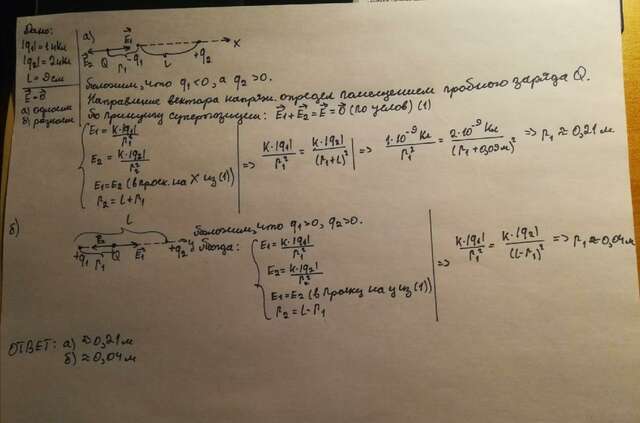 Дано:
|q₁| = 1 нКл
|q₂| = 2 нКл
L = 9 см
E⃗ = 0⃗
а) одноим
б) разноим
а)
E⃗₁
E⃗₂ Q -q₁ L +q₂ X
r₁
Положим, что q₁<0, а q₂>0.
Направление вектора напряж. определ помещением пробного заряда Q.
По принципу суперпозиции: E⃗₁+E⃗₂=E⃗=0⃗ (по услов) (1)
E₁ = K·|q₁| / r₁²
E₂ = K·|q₂| / r₂²
E₁=E₂ (в проек. на X из (1))
r₂ = L+r₁
=> K·|q₁| / r₁² = K·|q₂| / (r₁+L)² => 1·10⁻⁹ Кл / r₁² = 2·10⁻⁹ Кл / (r₁+0,09м)² => r₁ ≈ 0,21 м
б)
L
E₂
+q₁ Q E⃗₁ +q₂ y
r₁
Положим, что q₁>0, q₂>0.
Тогда:
E₁ = K·|q₁| / r₁²
E₂ = K·|q₂| / r₂²
E₁=E₂ (в проек на y из (1))
r₂ = L-r₁
=> K·|q₁| / r₁² = K·|q₂| / (L-r₁)² => r₁ ≈ 0,04 м
ОТВЕТ: а) ≈ 0,21 м
б) ≈ 0,04 м